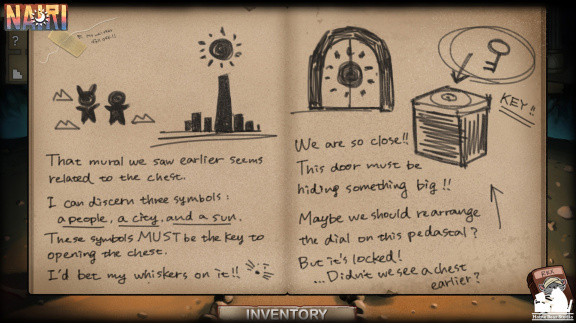 NAIRI
That mural we saw earlier seems
related to the chest.
I can discern three symbols:
a people, a city, and a sun.
These symbols MUST be the key to
opening the chest.
I'd bet my whiskers on it!!
KEY!!
We are so close!!
This door must be
hiding something big!!
Maybe we should rearrange
the dial on this pedastal?
But it's locked!
...Didn't we see a chest
earlier?
REX
INVENTORY